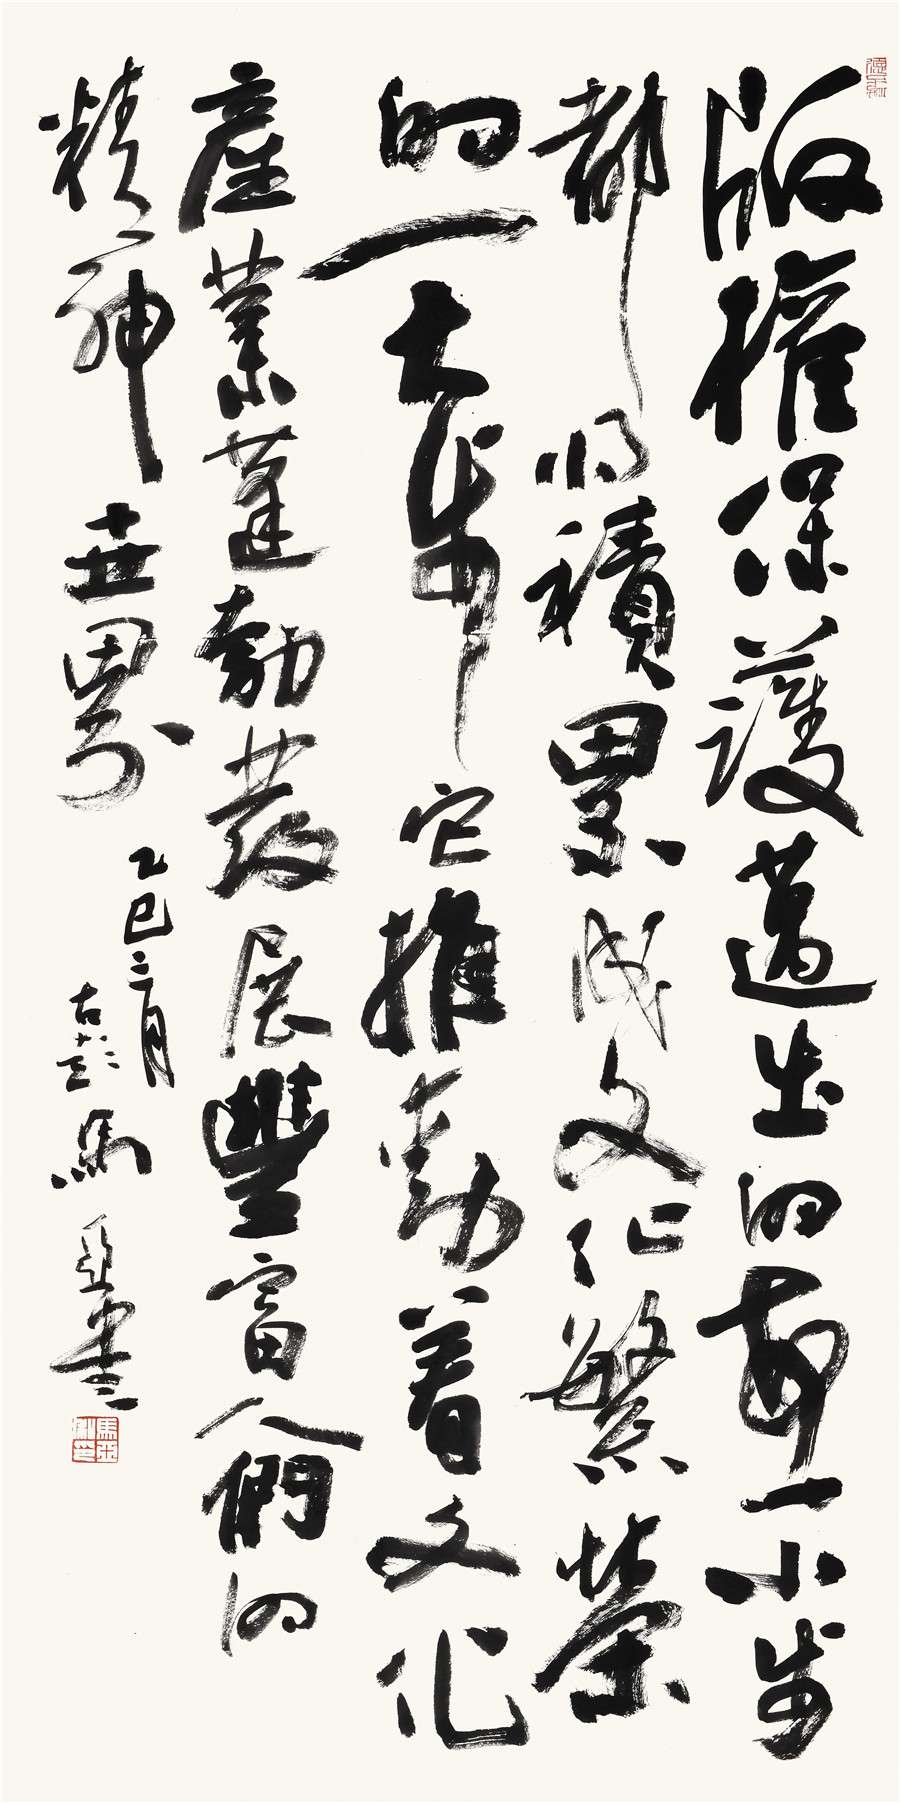 版權保護邁出的每一小步
都將積累成文化繁榮
的一大步它推動着文化
產業蓬勃發展豐富人們的
精神世界
乙巳三月
古彭馬亚